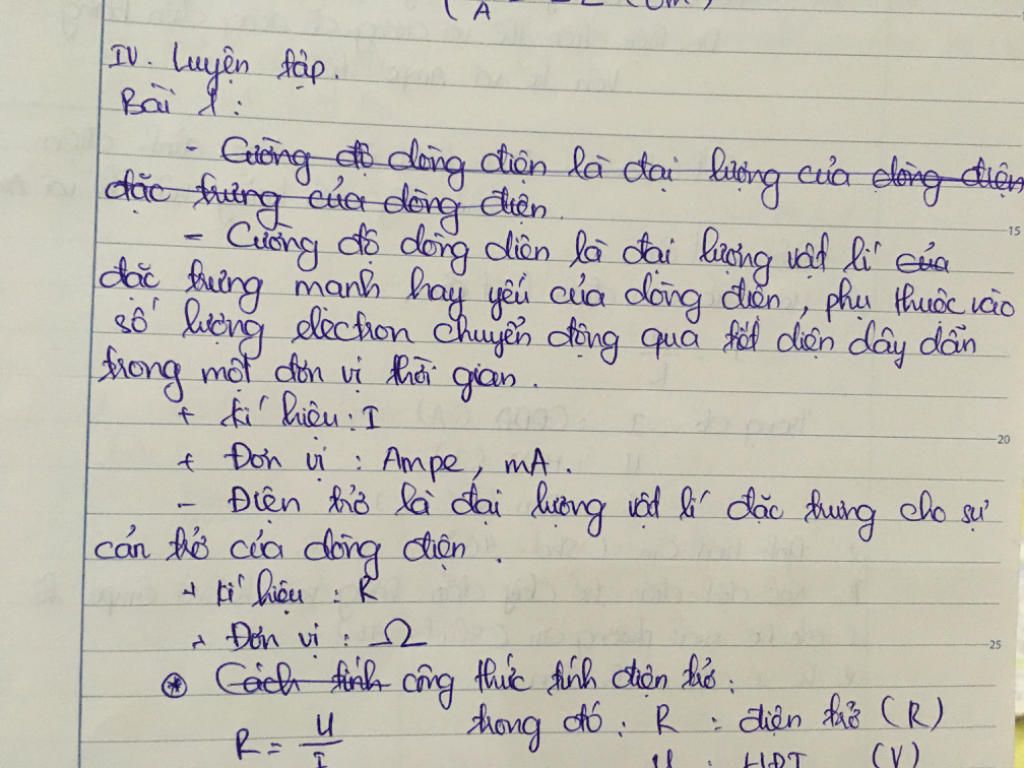 IV. Luyện tập.
Bài 1 :
- Cường độ dòng điện là đại lượng của dòng điện
đặc trưng của dòng điện.
- Cường độ dòng điện là đại lượng vật lí của
đặc trưng mạnh hay yếu của dòng điện, phụ thuộc vào
số lượng electron chuyển động qua tiết diện dây dẫn
trong một đơn vị thời gian.
+ Kí hiệu : I
+ Đơn vị : Ampe, mA.
- Điện trở là đại lượng vật lí đặc trưng cho sự
cản trở của dòng điện.
+ Kí hiệu : R
+ Đơn vị : Ω
* Cách tính công thức tính điện trở :
R = U / I trong đó : R : điện trở (R)
U : HĐT (V)